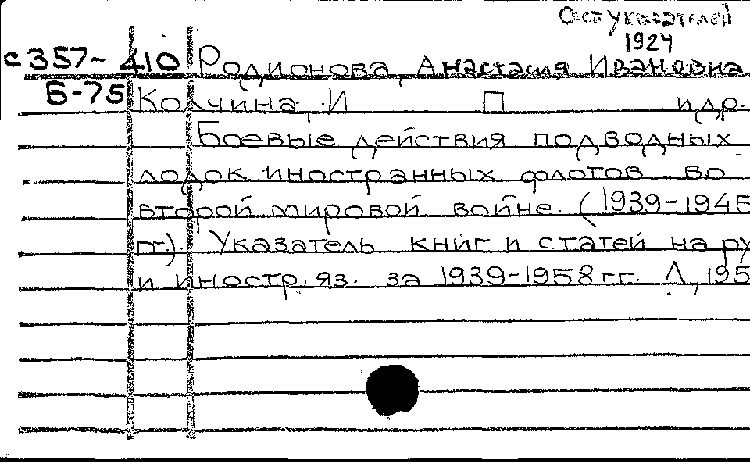 Сост указателей
1924
с357-410 Родионова, Анастасия Ивановна
Б-75 Колчина, И П и др.
Боевые действия подводных
лодок иностранных флотов во
второй мировой войне. (1939-1945
гг). Указатель книг и статей на ру
и иностр. яз. за 1939-1958 гг. Л, 195